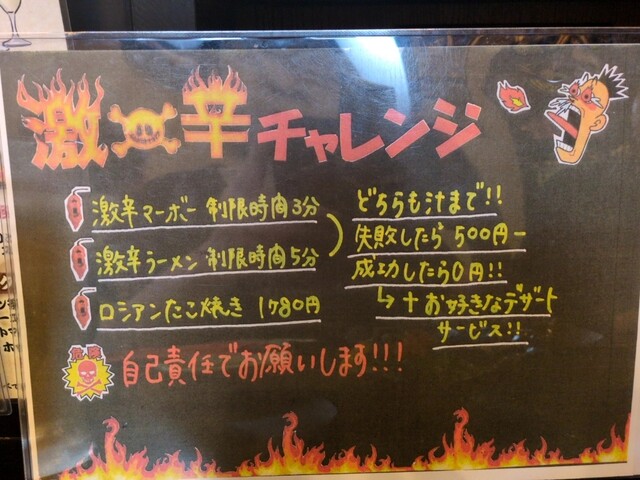 激辛チャレンジ
激辛マーボー 制限時間3分
激辛ラーメン 制限時間5分
ロシアンたこ焼き 1780円
どちらも汁まで!!
失敗したら 500円ー
成功したら0円!!
↳ + お好きなデザート
サービス!!
危険
自己責任でお願いします!!!